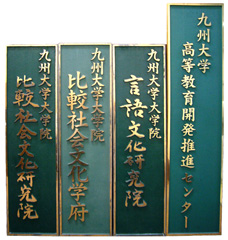 九州大学
高等教育開発推進センター
九州大学大学院
言語文化研究院
九州大学大学院
比較社会文化学府
九州大学大学院
比較社会文化研究院